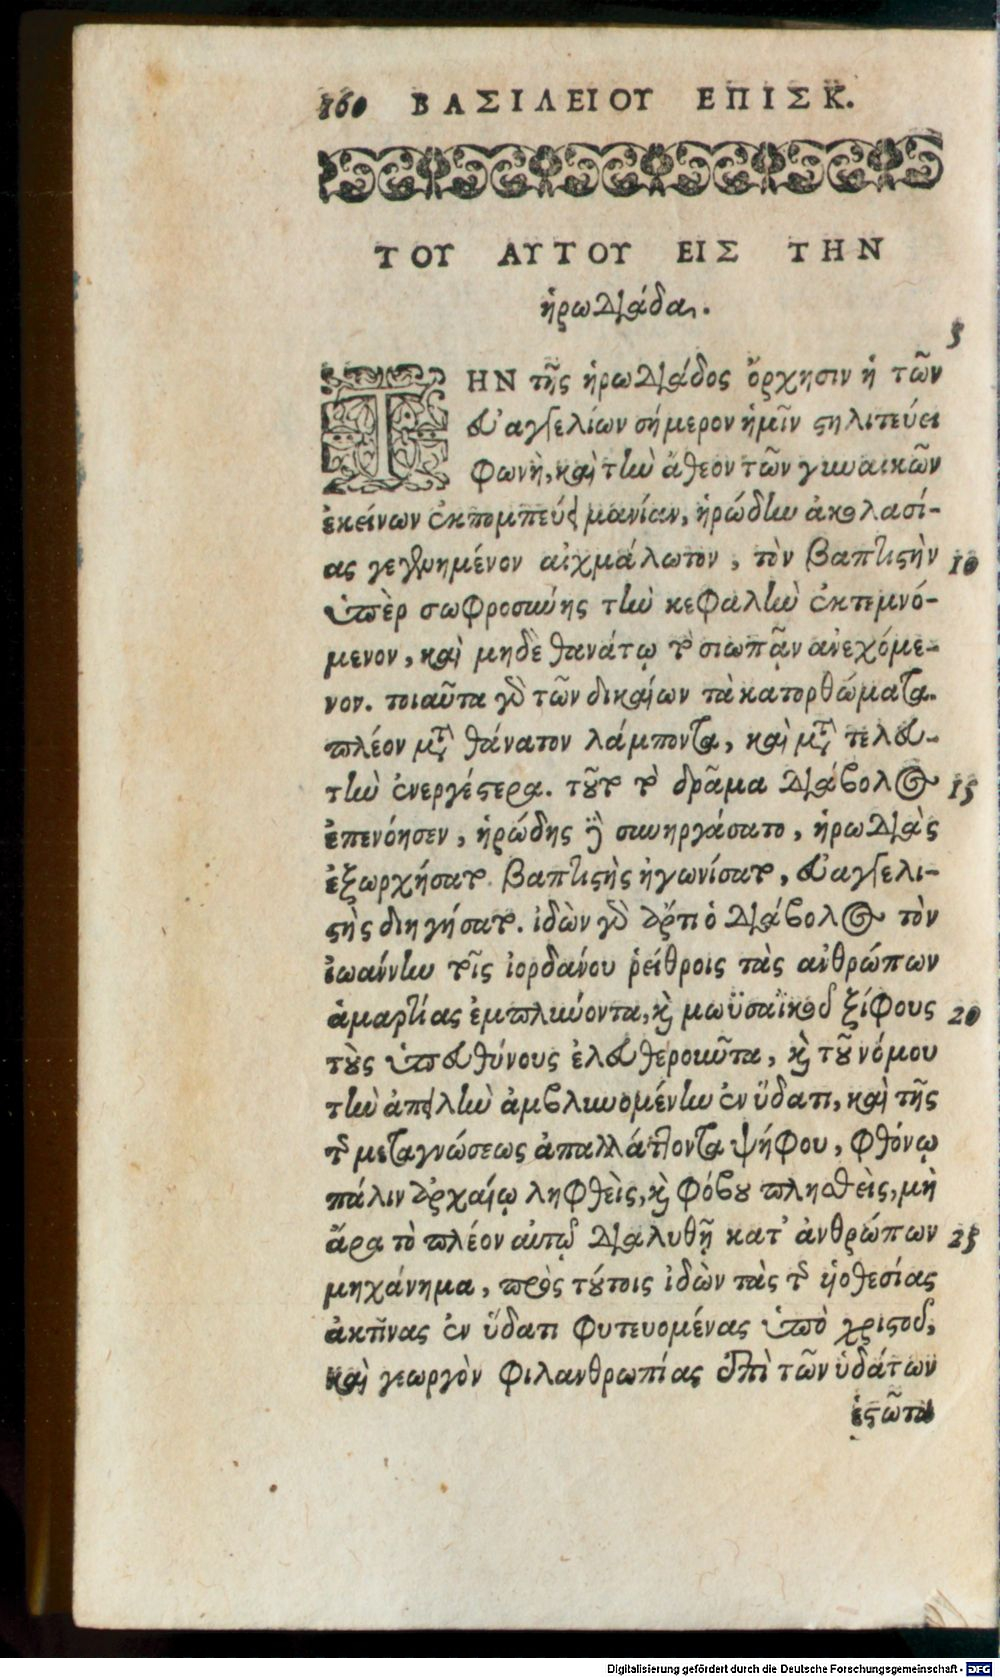 160 ΒΑΣΙΛΕΙΟΥ ΕΠΙΣΚ.
ΤΟΥ ΑΥΤΟΥ ΕΙΣ ΤΗΝ
ἡρωδιάδα.
5
ΤΗΝ τῆς ἡρωδιάδος ὄρχησιν ἡ τῶν
εὐαγγελίων σήμερον ἡμῖν στηλιτεύει
φωνὴ, καὶ τὴν ἄθεον τῶν γυναικῶν
ἐκείνων ἐκπομπεύει μανίαν, ἡρώδην ἀκολασί-
ας γεγενημένον αἰχμάλωτον, τὸν βαπτιστὴν 10
ὑπὲρ σωφροσύνης τὴν κεφαλὴν ἐκτεμνό-
μενον, καὶ μηδὲ θανάτῳ τὸ σιωπᾷν ἀνεχόμε-
νον. τοιαῦτα γὰρ τῶν δικαίων τὰ κατορθώματα.
πλέον μετὰ θάνατον λάμποντα, καὶ μετὰ τελευ-
τὴν ἐνεργέστερα. τοῦτο τὸ δρᾶμα διάβολος 15
ἐπενόησεν, ἡρώδης δὲ συνηργάσατο, ἡρωδιὰς
ἐξωρχήσατο. βαπτιστὴς ἠγωνίσατο, εὐαγγελι-
στὴς διηγήσατο. ἰδὼν γὰρ ἄρτι ὁ διάβολος τὸν
ἰωάννην τοῖς ἰορδάνου ῥείθροις τὰς ἀνθρώπων
ἁμαρτίας ἐμπλύοντα, καὶ μωϋσαϊκοῦ ξίφους 20
τοὺς ὑπευθύνους ἐλευθεροῦντα, καὶ τοῦ νόμου
τὴν ἀπειλὴν ἀμβλυνομένην ἐν ὕδατι, καὶ τῆς
τῆς μεταγνώσεως ἀπαλλάττοντα ψήφου, φθόνῳ
πάλιν ἀρχαίῳ ληφθεὶς, καὶ φόβου πλησθεὶς, μὴ
ἄρα τὸ πλέον αὐτῷ διαλυθῇ κατ' ἀνθρώπων 25
μηχάνημα, πρὸς τούτοις ἰδὼν τὰς τῆς υἱοθεσίας
ἀκτῖνας ἐν ὕδατι φυτευομένας ὑπὸ χριστοῦ,
καὶ γεωργὸν φιλανθρωπίας ἐπὶ τῶν ὑδάτων
ἑστῶτα
Digitalisierung gefördert durch die Deutsche Forschungsgemeinschaft - DFG